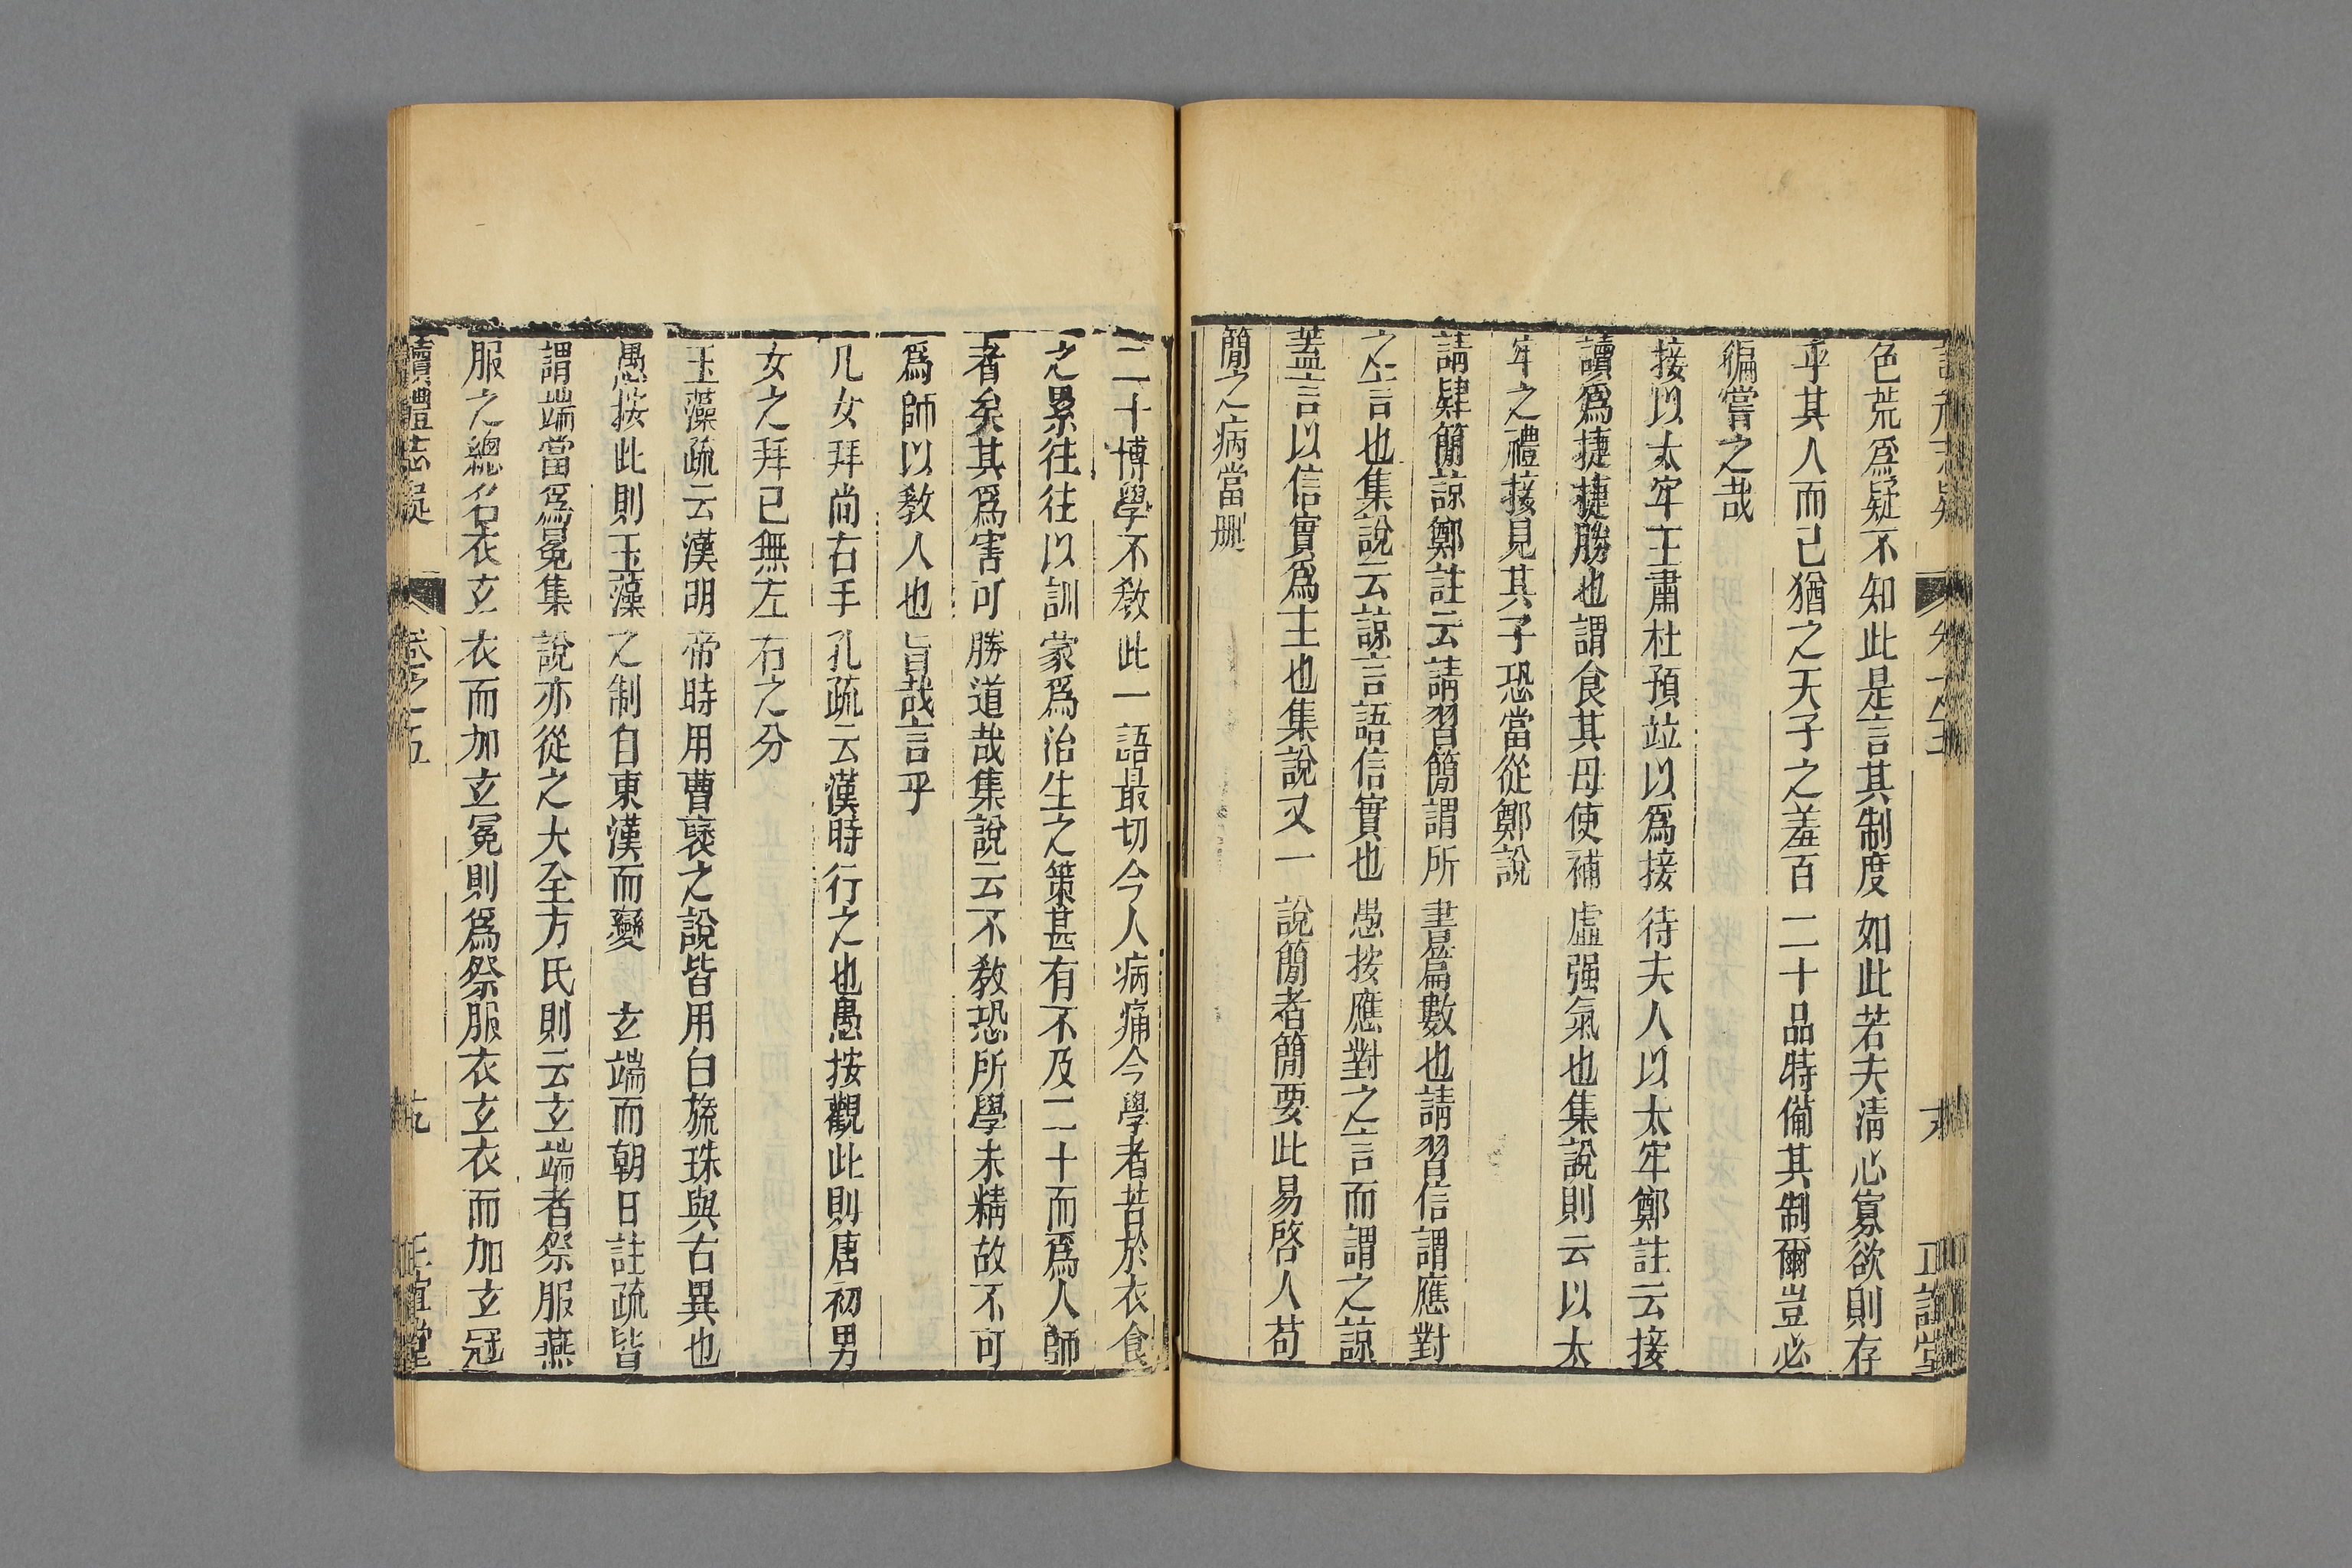 色荒爲疑不知此是言其制度如此若夫淸心寡欲則存
乎其人而已猶之天子之羞百二十品特備其制爾豈必
徧嘗之哉
接以太牢王肅杜預竝以爲接待夫人以太牢鄭註云接
讀爲捷捷勝也謂食其母使補虛强氣也集說則云以太
牢之禮接見其子恐當從鄭說
請肄簡諒鄭註云請習簡謂所書篇數也請習信謂應對
之言也集說云諒言語信實也愚按應對之言而謂之諒
葢言以信實爲主也集說又一說簡者簡要此易啓人苟
簡之病當刪
二十博學不敎此一語最切今人病痛今學者苦於衣食
之累往往以訓蒙爲治生之策甚有不及二十而爲人師
者矣其爲害可勝道哉集說云不敎恐所學未精故不可
爲師以敎人也旨哉言乎
凡女拜尚右手孔疏云漢時行之也愚按觀此則唐初男
女之拜已無左右之分
玉藻疏云漢明帝時用曹襃之說皆用白旒珠與古異也
愚按此則玉藻之制自東漢而變　玄端而朝日註疏皆
謂端當爲冕集說亦從之大全方氏則云玄端者祭服燕
服之總名衣玄衣而加玄冕則爲祭服衣玄衣而加玄冠
讀禮志疑　卷之五　正誼堂